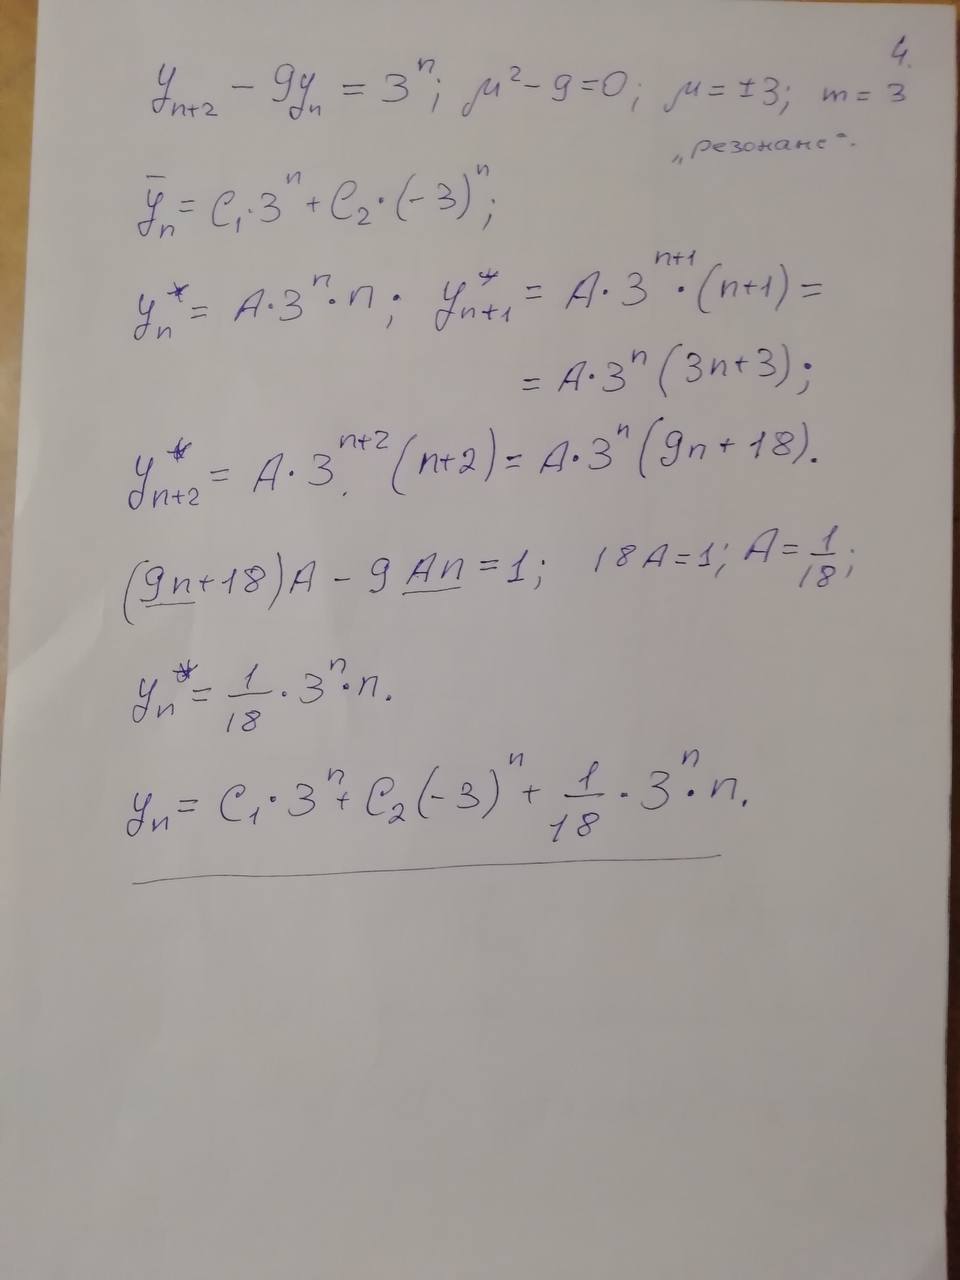 4.
yₙ₊₂ − 9yₙ = 3ⁿ; μ² − 9 = 0; μ = ±3; m = 3
„резонанс“.
ȳₙ = C₁·3ⁿ + C₂·(−3)ⁿ;
yₙ* = A·3ⁿ·n; yₙ₊₁* = A·3ⁿ⁺¹·(n+1) =
= A·3ⁿ(3n+3);
yₙ₊₂* = A·3ⁿ⁺²(n+2) = A·3ⁿ(9n+18).
(9n+18)A − 9An = 1; 18A = 1; A = 1/18;
yₙ* = 1/18·3ⁿ·n.
yₙ = C₁·3ⁿ + C₂(−3)ⁿ + 1/18·3ⁿ·n.